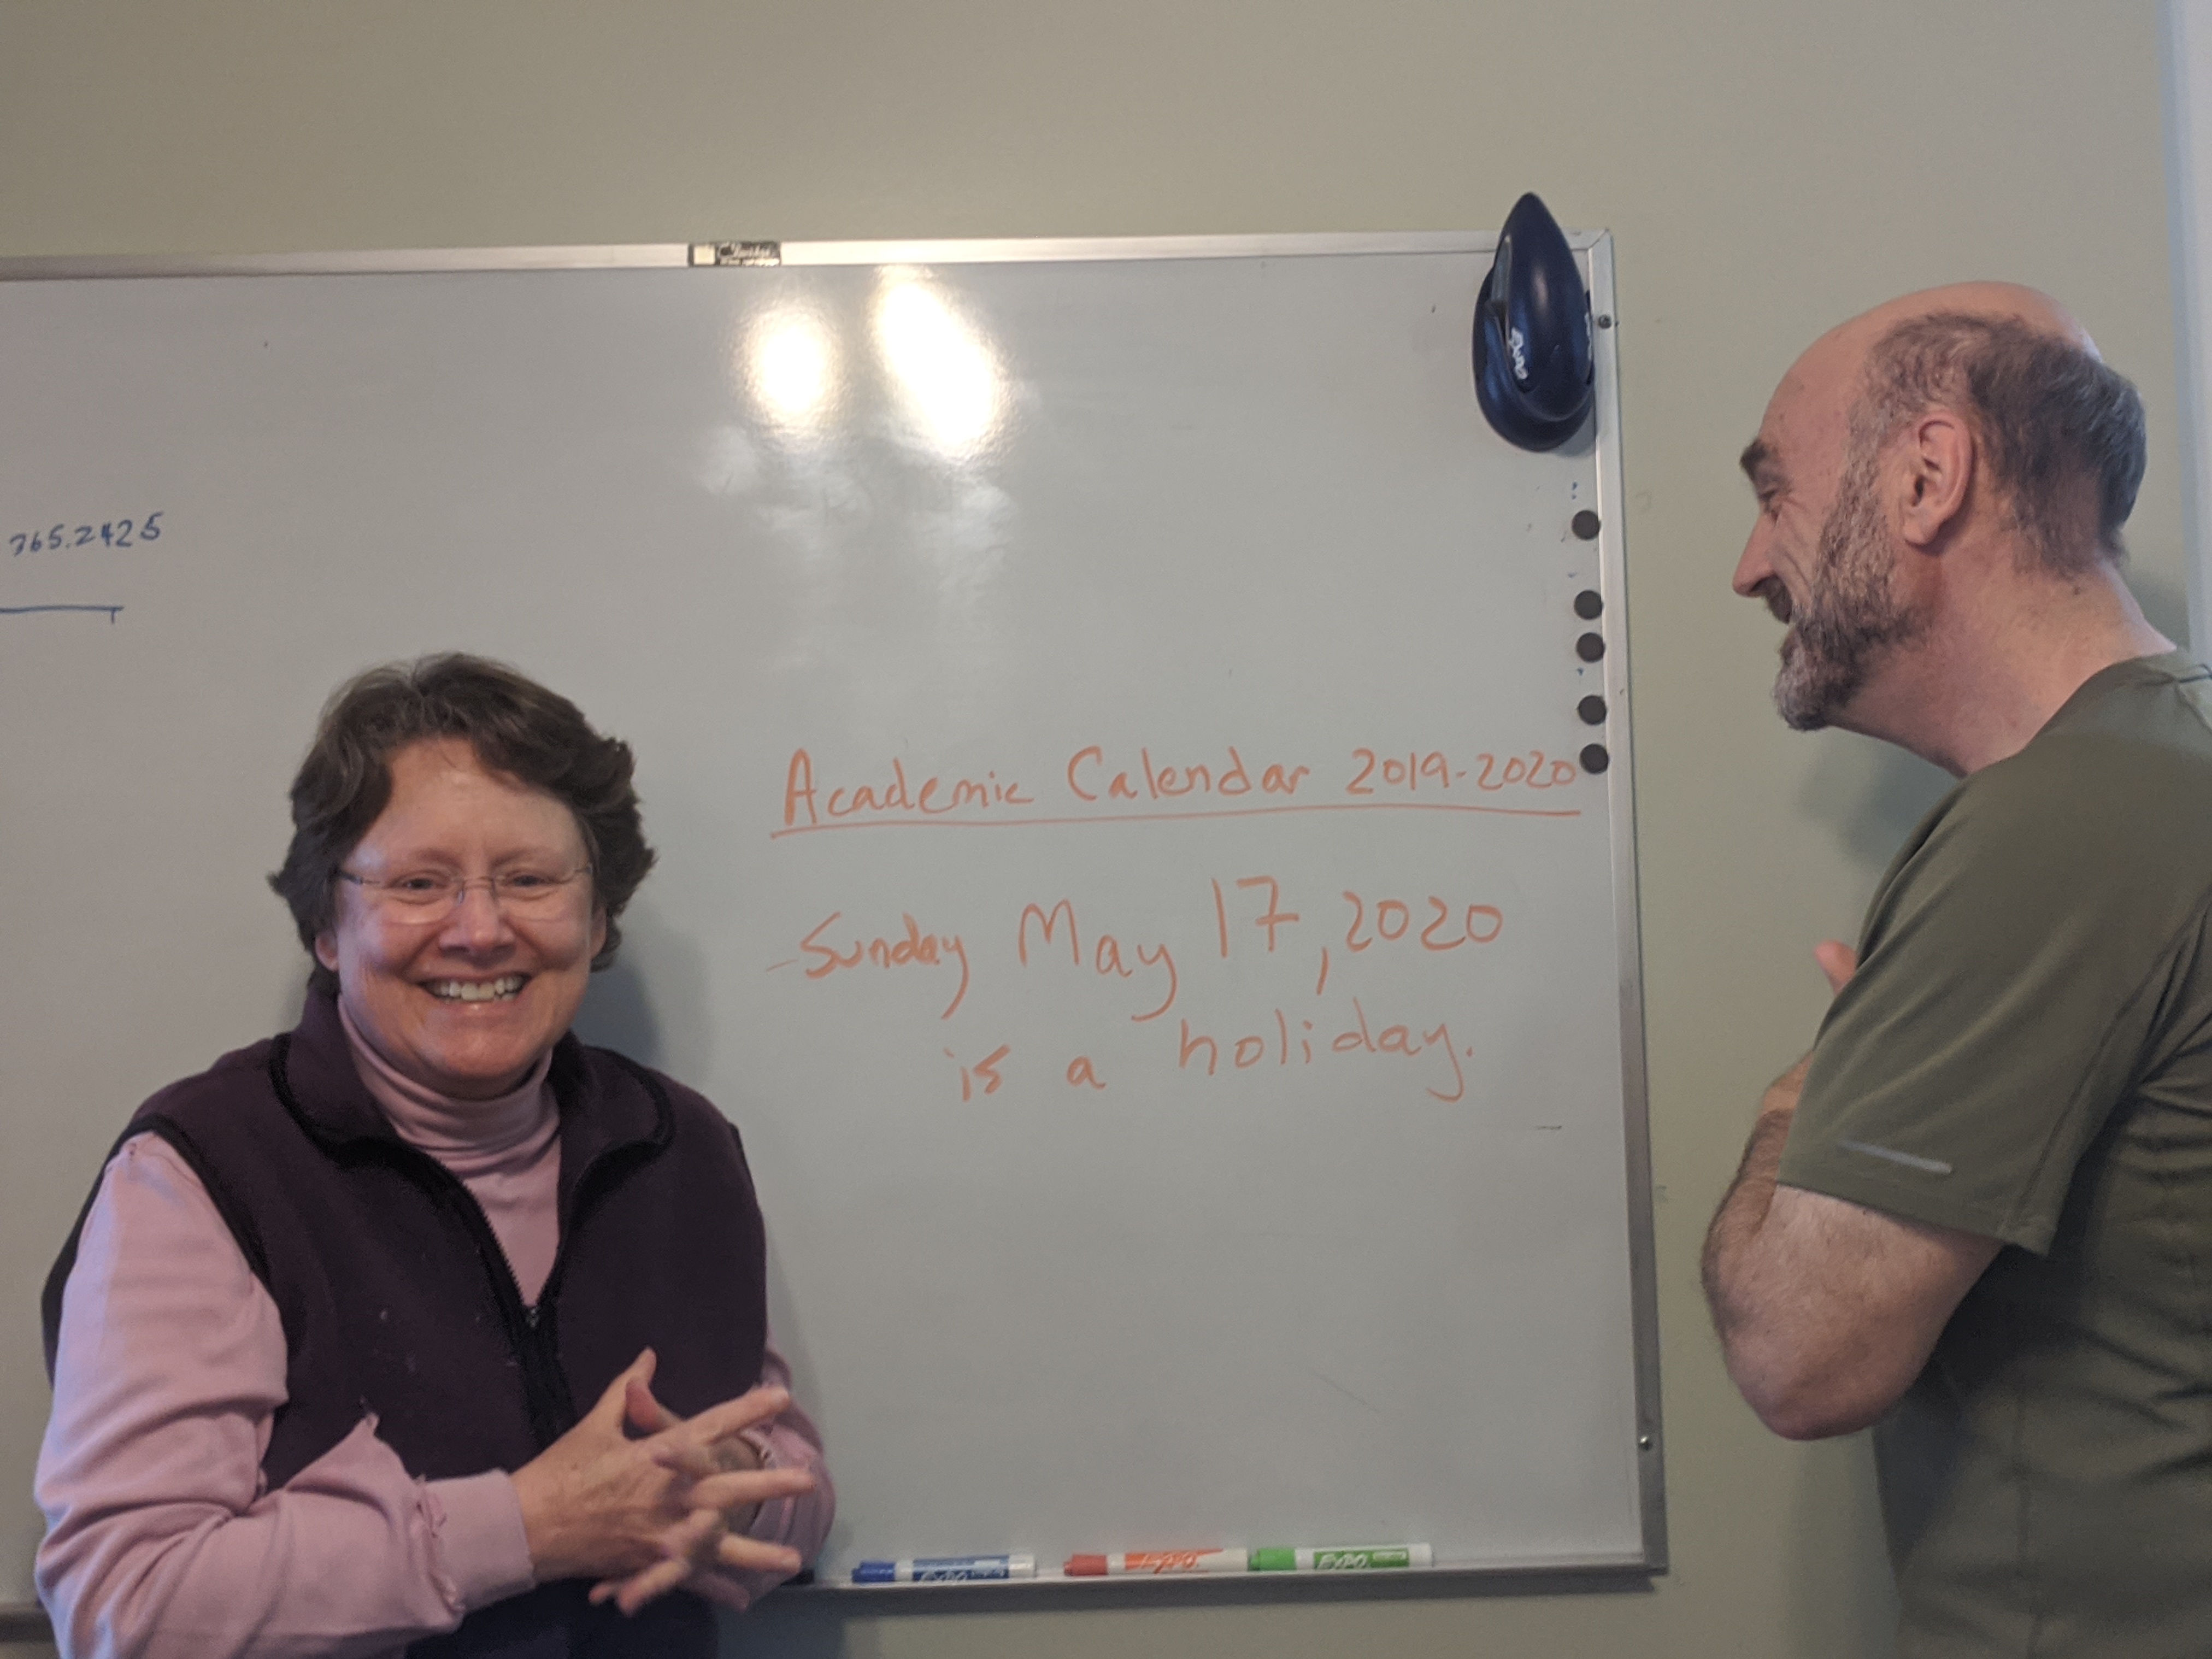 365.2425
Academic Calendar 2019-2020
Sunday May 17, 2020
is a holiday.
EXPO
EXPO
EXPO
EXPO